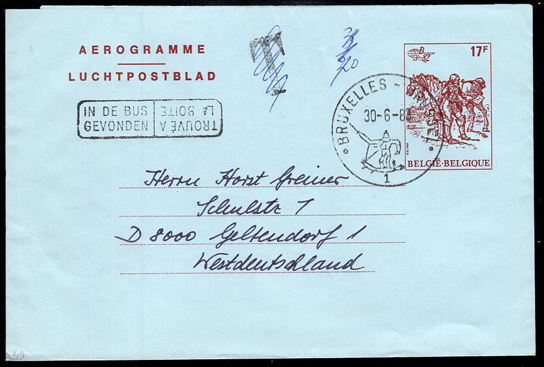 AEROGRAMME
LUCHTPOSTBLAD
T
17F
B
IN DE BUS
GEVONDEN
TROUVÉ À
LA BOITE
BRUXELLES - BRUSSEL
30-6-8
1
BELGIË-BELGIQUE
Herrn Horst Greiner
Schulstr 1
D 8000 Geltendorf 1
Westdeutschland